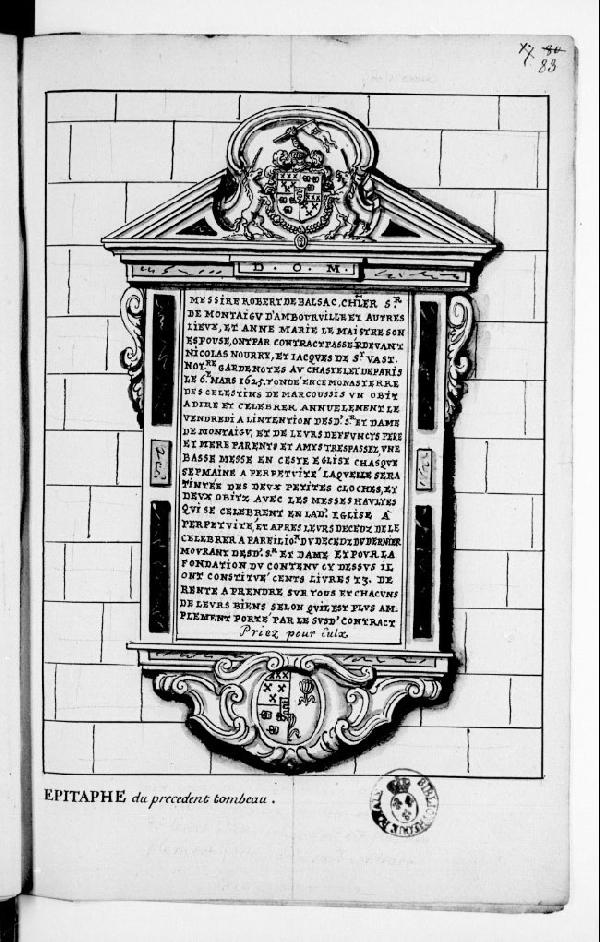 83
D. O. M.
MESSIRE ROBERT DE BALSAC, CHLER Sr
DE MONTAIGV D'AMBOURVILLE ET AUTRES
LIEUX, ET ANNE MARIE LE MAISTRE SON
ESPOUSE, ONT PAR CONTRACT PASSÉ P.DEVANT
NICOLAS NOURRY, ET IACQVES DE St VAST.
NOTRE GARDENOTES AV CHASTELET DE PARIS
LE 6e MARS 1625. FONDÉ EN CE MONASTERRE
DES CELESTINS DE MARCOUSSIS VN OBIT
A DIRE ET CELEBRER ANNUELEMENT LE
VENDREDI A LINTENTION DESD. Sr ET DAME
DE MONTAIGV, ET DE LEVRS DEFFVNCTS PERE
ET MERE PARENTS ET AMYS TRESPASSEZ, VNE
BASSE MESSE EN CESTE EGLISE CHASQVE
SEPMAINE A PERPETVITÉ LAQVELLE SERA
TINTÉE DES DEVX PETITES CLOCHES, ET
DEVX OBITZ AVEC LES MESSES HAVLTES
QVI SE CELEBRENT EN LAD. EGLISE A
PERPETVITÉ, ET APRES LEVRS DECEDZ DE LE
CELEBRER A PAREIL IOr DV DECEDZ DV DERNIER
MOVRANT DESD. Sr ET DAME ET POVR LA
FONDATION DV CONTENV CY DESSVS IL
ONT CONSTITVÉ CENTS LIVRES TZ. DE
RENTE A PRENDRE SVR TOVS ET CHACVNS
DE LEVRS BIENS SELON QVIL EST PLVS AM-
PLEMENT PORTÉ PAR LE SVSD. CONTRACT
Priez pour eulx
EPITAPHE du precedent tombeau.
BIBLIOTHEQUE ROYALE